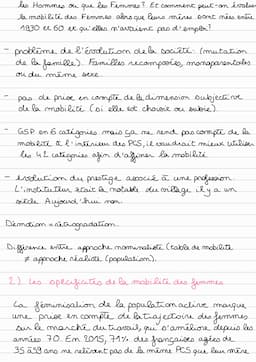 les Hommes ou que les Femmes ? Et comment peut-on évaluer
la mobilité des Femmes alors que leurs mères sont nées entre
1930 et 60 et qu'elles n'avaient pas d'emploi ?
- problème de l'évolution de la société (mutation
de la famille). Familles recomposées, monoparentales
ou du même sexe.
- pas de prise en compte de la dimension subjective
de la mobilité (si elle est choisie ou subie).
- GSP en 6 catégories mais ça ne rend pas compte de la
mobilité à l'intérieur des PCS, il vaudrait mieux utiliser
les 42 catégories afin d'affiner la mobilité.
- évolution du prestige associé à une profession.
L'instituteur était la notable du village il y a un
siècle. Aujourd'hui non.
Démotion = rétrogradation.
Différence entre approche nominaliste (table de mobilité
≠ approche réaliste (population).
2) Les spécificités de la mobilité des femmes
La féminisation de la population active marque
une prise en compte de la trajectoire des femmes
sur le marché du travail qui s'améliore depuis les
années 70. En 2015, 71% des françaises agées de
35 à 59 ans ne relèvent pas de la même PCS que leur mère.